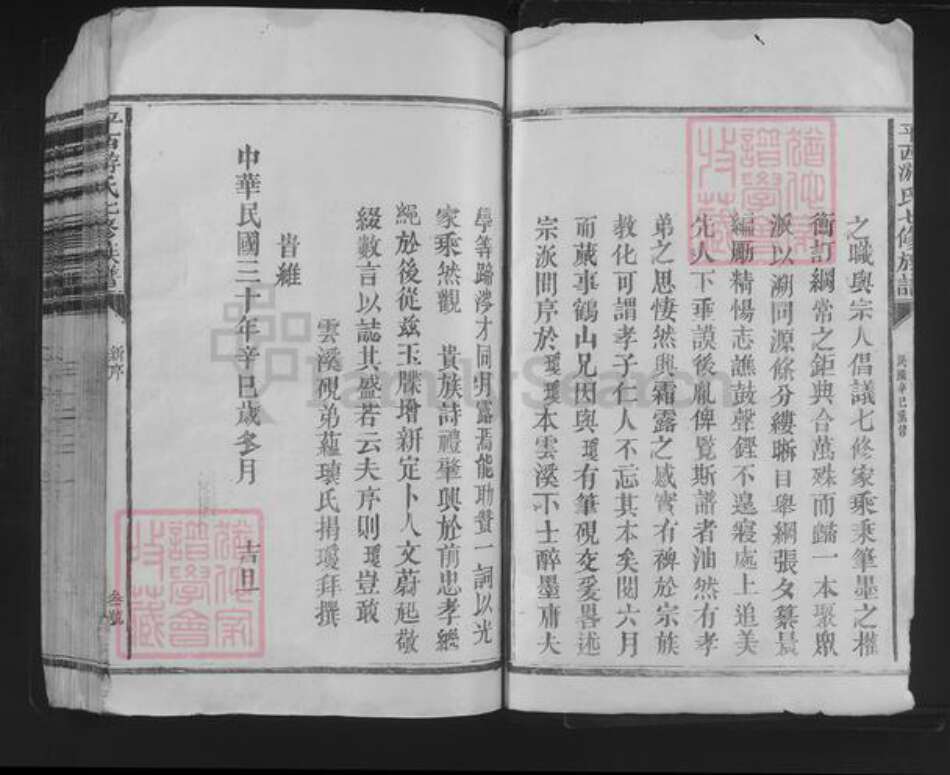 平西游氏七修族譜
民國辛巳歲修
之職與宗人倡議七修家乘乘筆墨之權
衡訂綱常之鉅典合萬殊而歸一本聚眾
派以溯同源條分縷晰目舉綱張夕纂晨
編勵精惕志譙鼓聲鏗不遑寢處上追美
先人下垂謨後胤俾覽斯譜者油然有孝
弟之思悽然與霜露之感實有裨於宗族
教化可謂孝子仁人不忘其本矣閱六月
而蕆事鶴山兄因與瓊有筆硯交爰畧述
宗派問序於瓊瓊本雲溪下士醉墨庸夫
學等蹄涔才同爝露焉能助贊一詞以光
家乘然觀 貴族詩禮肇興於前忠孝繼
繩於後從茲玉牒增新定卜人文蔚起敬
綴數言以誌其盛若云夫序則瓊豈敢
雲溪硯弟蘊瓖氏揖瓊拜撰
旹維
中華民國三十年辛巳歲冬月 吉旦
平西游氏七修族譜
新序
叁號
FamilySearch